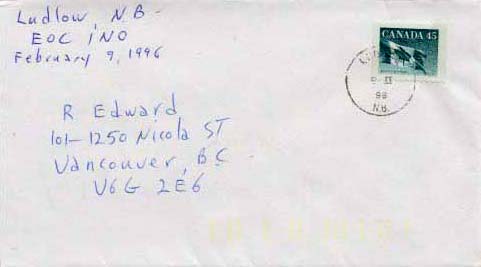 Ludlow, N.B -
EOC INO
February 9, 1996
CANADA 45
9 II
96
N.B.
R Edward
101-1250 Nicola ST
Vancouver, BC
V6G 2E6